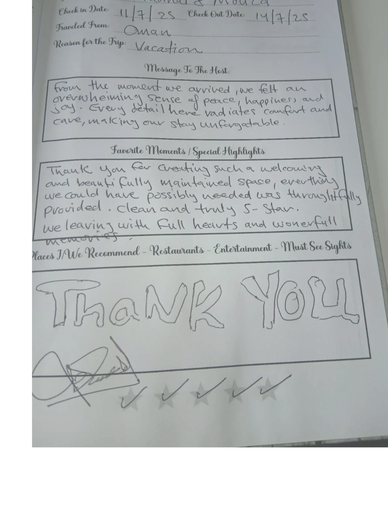 Check in Date: 11/7/25 Check Out Date: 14/7/25
Traveled From: Oman
Reason for the Trip: Vacation
Message To The Host
From the moment we arrived, we felt an
overwheiming sense of peace, happiness and
joy. Every detail here radiates comfort and
care, making our stay unforgatable.
Favorite Moments / Special Highlights
Thank you for creating such a welcoming
and beauti fully maintained space, everthing
we could have possibly needed was throughtfully
provided. clean and truly 5-star.
we leaving with full hearts and wonerfull
memories.
Places I/We Recommend - Restaurants - Entertainment - Must See Sights
THaNK YOU